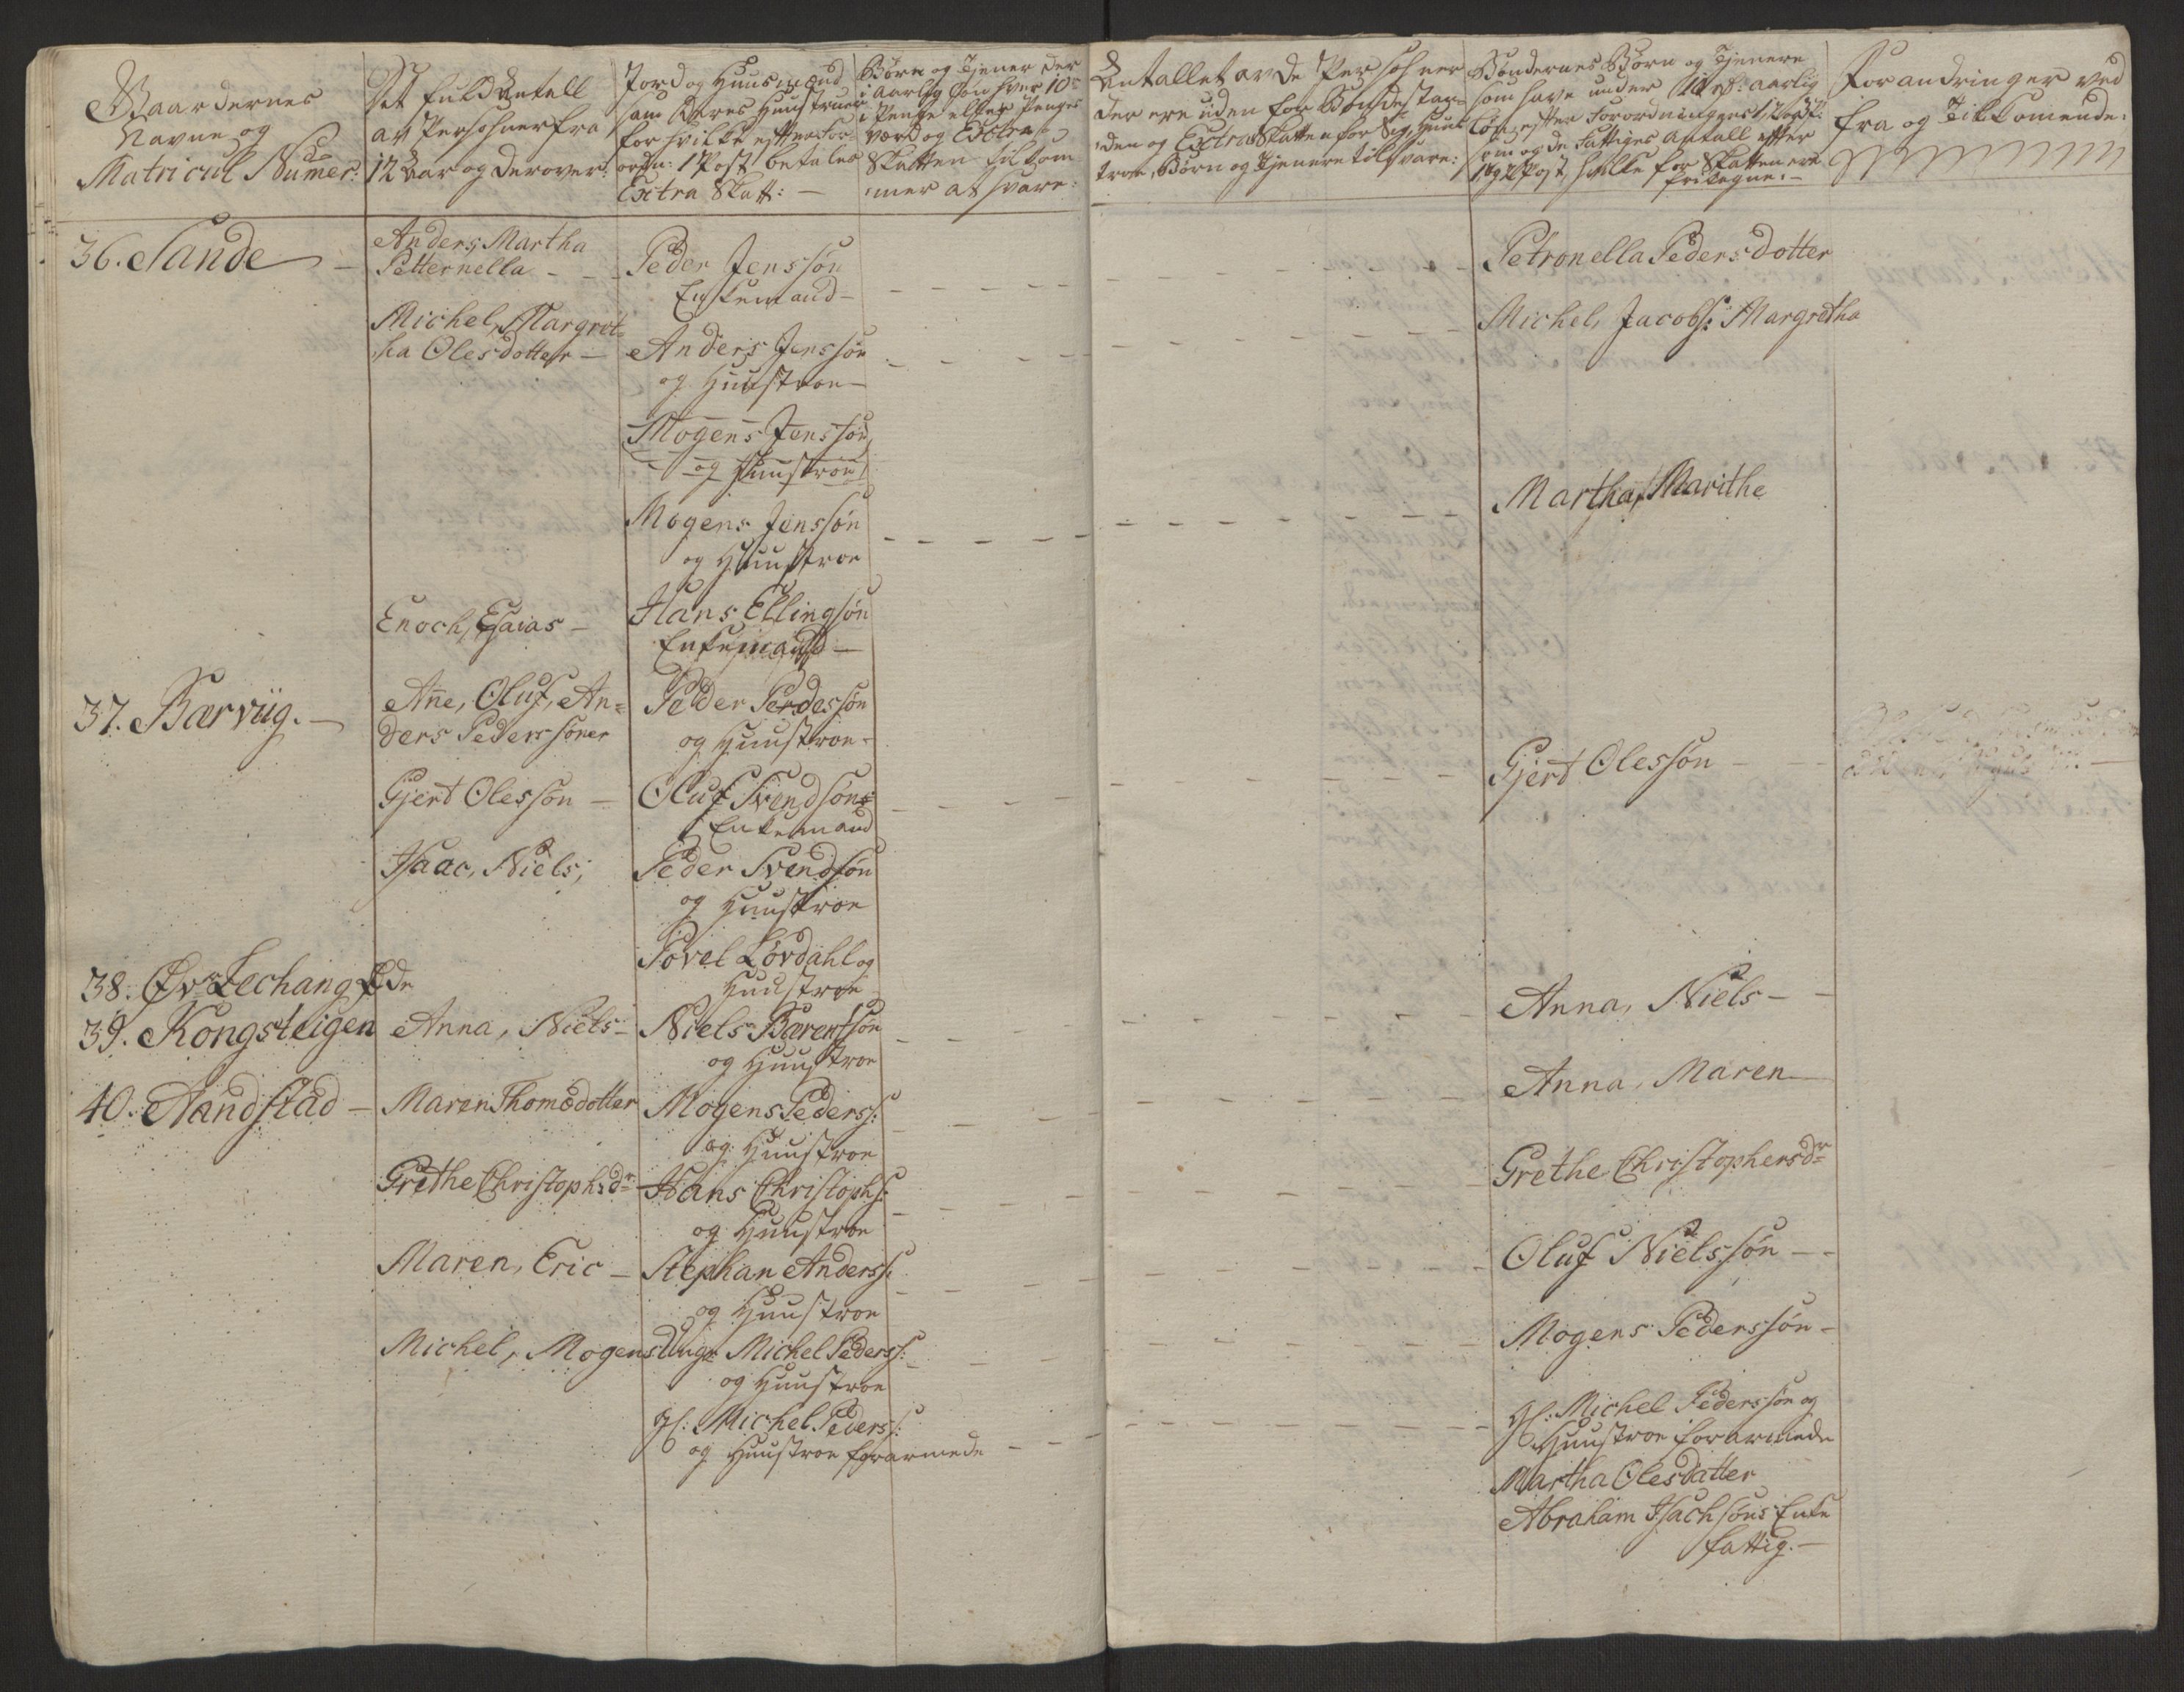 Gaardernes
Navne og
Matricul Numer:
Det fuld Antall
av Persohner fra
12 Aar og derover:
Jord og Huusmænd
sam deres Hustruer
for hvilke efter For
ordn: 1 Post betales
Extra Skatt: —
Børn og Tjener der
i aarlig Løn have 10
i Penge eller Penges
værd og Extra
Skatten tilkom
mer at svare:
Antallet av de Persohner
der ere uden for Bondestan
den og Extra Skatten for Sig, Huus
troe, Børn og Tjenere tilsvare:
Bøndernes Børn og Tjenere
som have under 10 rd: aarlig
Løn efter Forordningens 1 Post:
om og de Fattiges Antall efter
Post, hvilke for Skatten ere
fritagne. —
Forandringer ved
fra og Tilkomende:
36. Sande —
Anders, Martha
Petternella - - -
Peder Jenssøn
Enkemand —
Petronella Pedersdotter
Michel, Margret
ha Olesdotter —
Anders Jenssøn
og Huustroe —
Michel, Jacobs: Margretha
Mogens Jenssøn
og Huustroe
Mogens Jenssøn
og Huustroe
Martha, Marithe
Enoch, Esaias —
Hans Ellingsøn
Enkemand —
37. Barviig. —
Añe, Oluf, An=
ders Pederssøner
Peder Pedessøn
og Huustroe -
Gjert Olessøn —
Oluf Svendsøn
Enkemand
Gjert Olessøn —
Isaac, Niels,
Peder Svendsøn
og Huustroe
38. Øv: Lechang Øde
Povel Løvdahl og
Huustroe
39. Kongsteigen
Anna, Niels —
Niels Barentsøn
og Huustroe
Anna, Niels —
40. Aandstad —
Maren Thomedotter
Mogens Peders:
og Huustroe
Anna, Maren
Grethe Christophsdr
Hans Christophs:
og Huustroe
Grethe Christophersdr
Maren, Eric —
Stephan Anders:
og Huustroe
Oluf Nielssøn —
Michel, Mogens
Unge Michel Peders:
og Huustroe
Mogens Pederssøn —
gl: Michel Peders:
og Huustroe forarmede
gl: Michel Pederssøn og
Huustroe forarmede
Martha Olesdatter
Abraham Isachsøns Enke
fattig. —